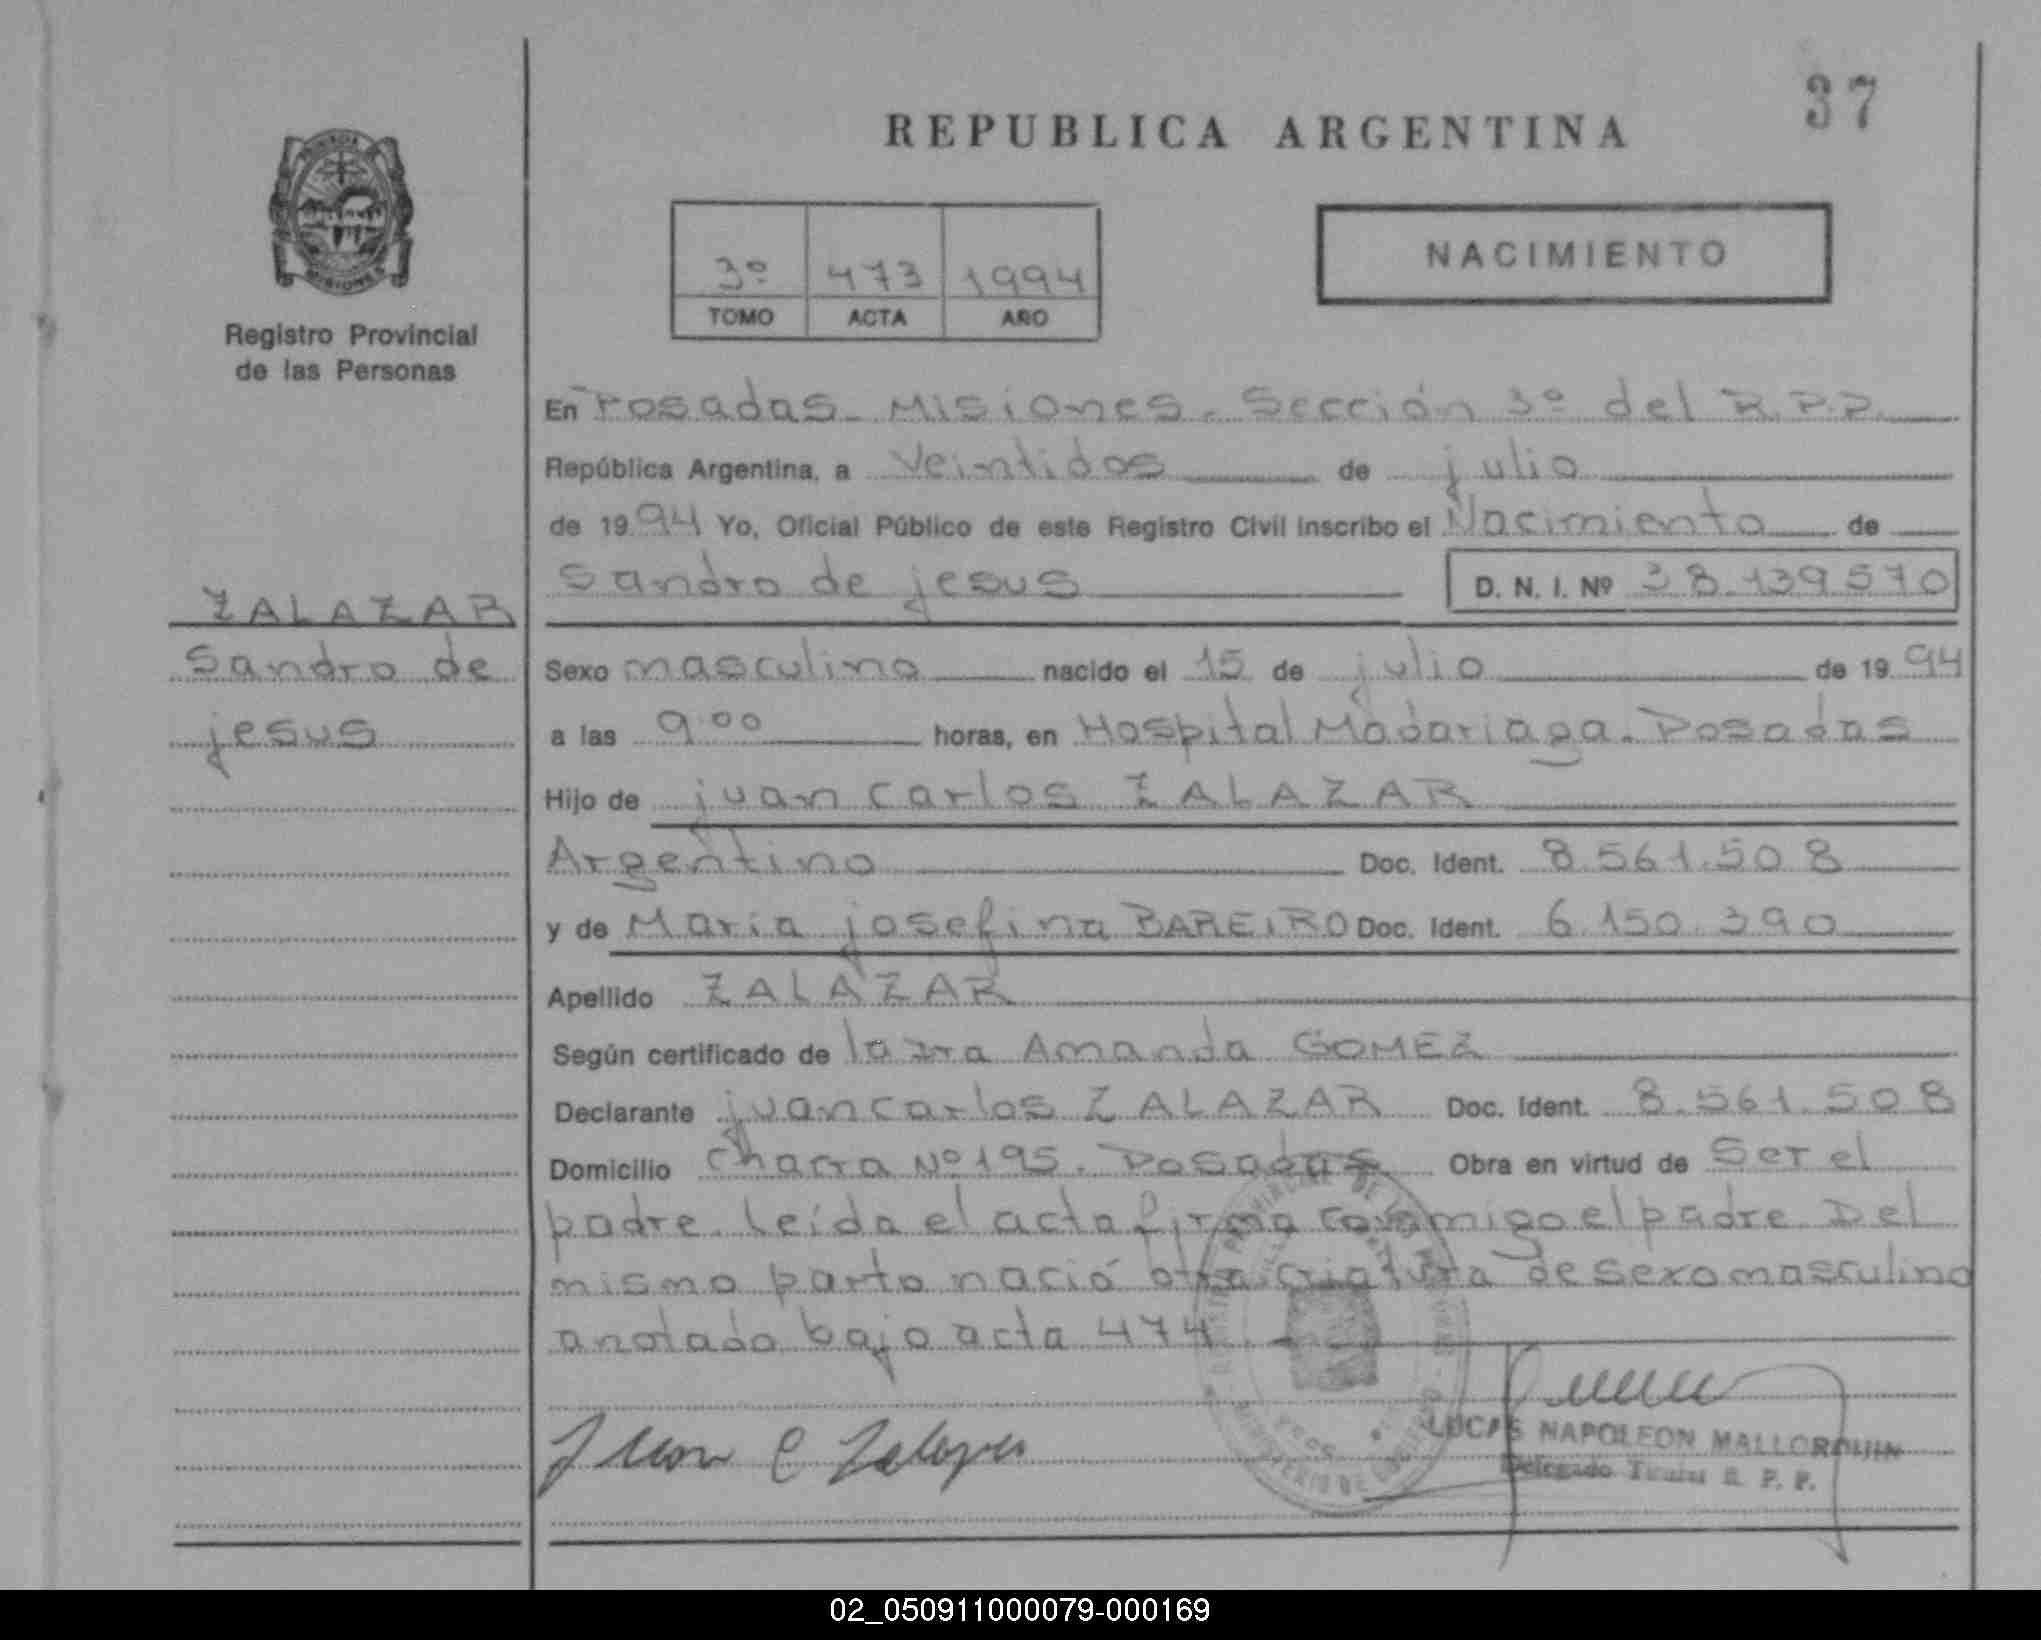 37
REPUBLICA ARGENTINA
MISIONES
Registro Provincial
de las Personas
3º 473 1994
TOMO ACTA AÑO
NACIMIENTO
En Posadas - Misiones. Sección 3º del R.P.P.
República Argentina, a Veintidos de julio
de 1994 Yo, Oficial Público de este Registro Civil inscribo el Nacimiento de
Sandro de jesus D. N. I. Nº 38.139.570
ZALAZAR
Sandro de
jesus
Sexo masculino nacido el 15 de julio de 1994
a las 9:00 horas, en Hospital Madariaga. Posadas
Hijo de juan Carlos ZALAZAR
Argentino Doc. Ident. 8.561.508
y de Maria josefina BAREIRO Doc. Ident. 6.150.390
Apellido ZALAZAR
Según certificado de Amanda GOMEZ
Declarante juan Carlos ZALAZAR Doc. Ident. 8.561.508
Domicilio Chacra Nº 195. Posadas Obra en virtud de Ser el
padre. Leída el acta firma conmigo el padre. Del
mismo parto nació otra criatura de sexo masculino
anotado bajo acta 474. -
Juan C Zalazar
LUCAS NAPOLEON MALLORQUIN
Delegado Titular R. P. P.
02_050911000079-000169